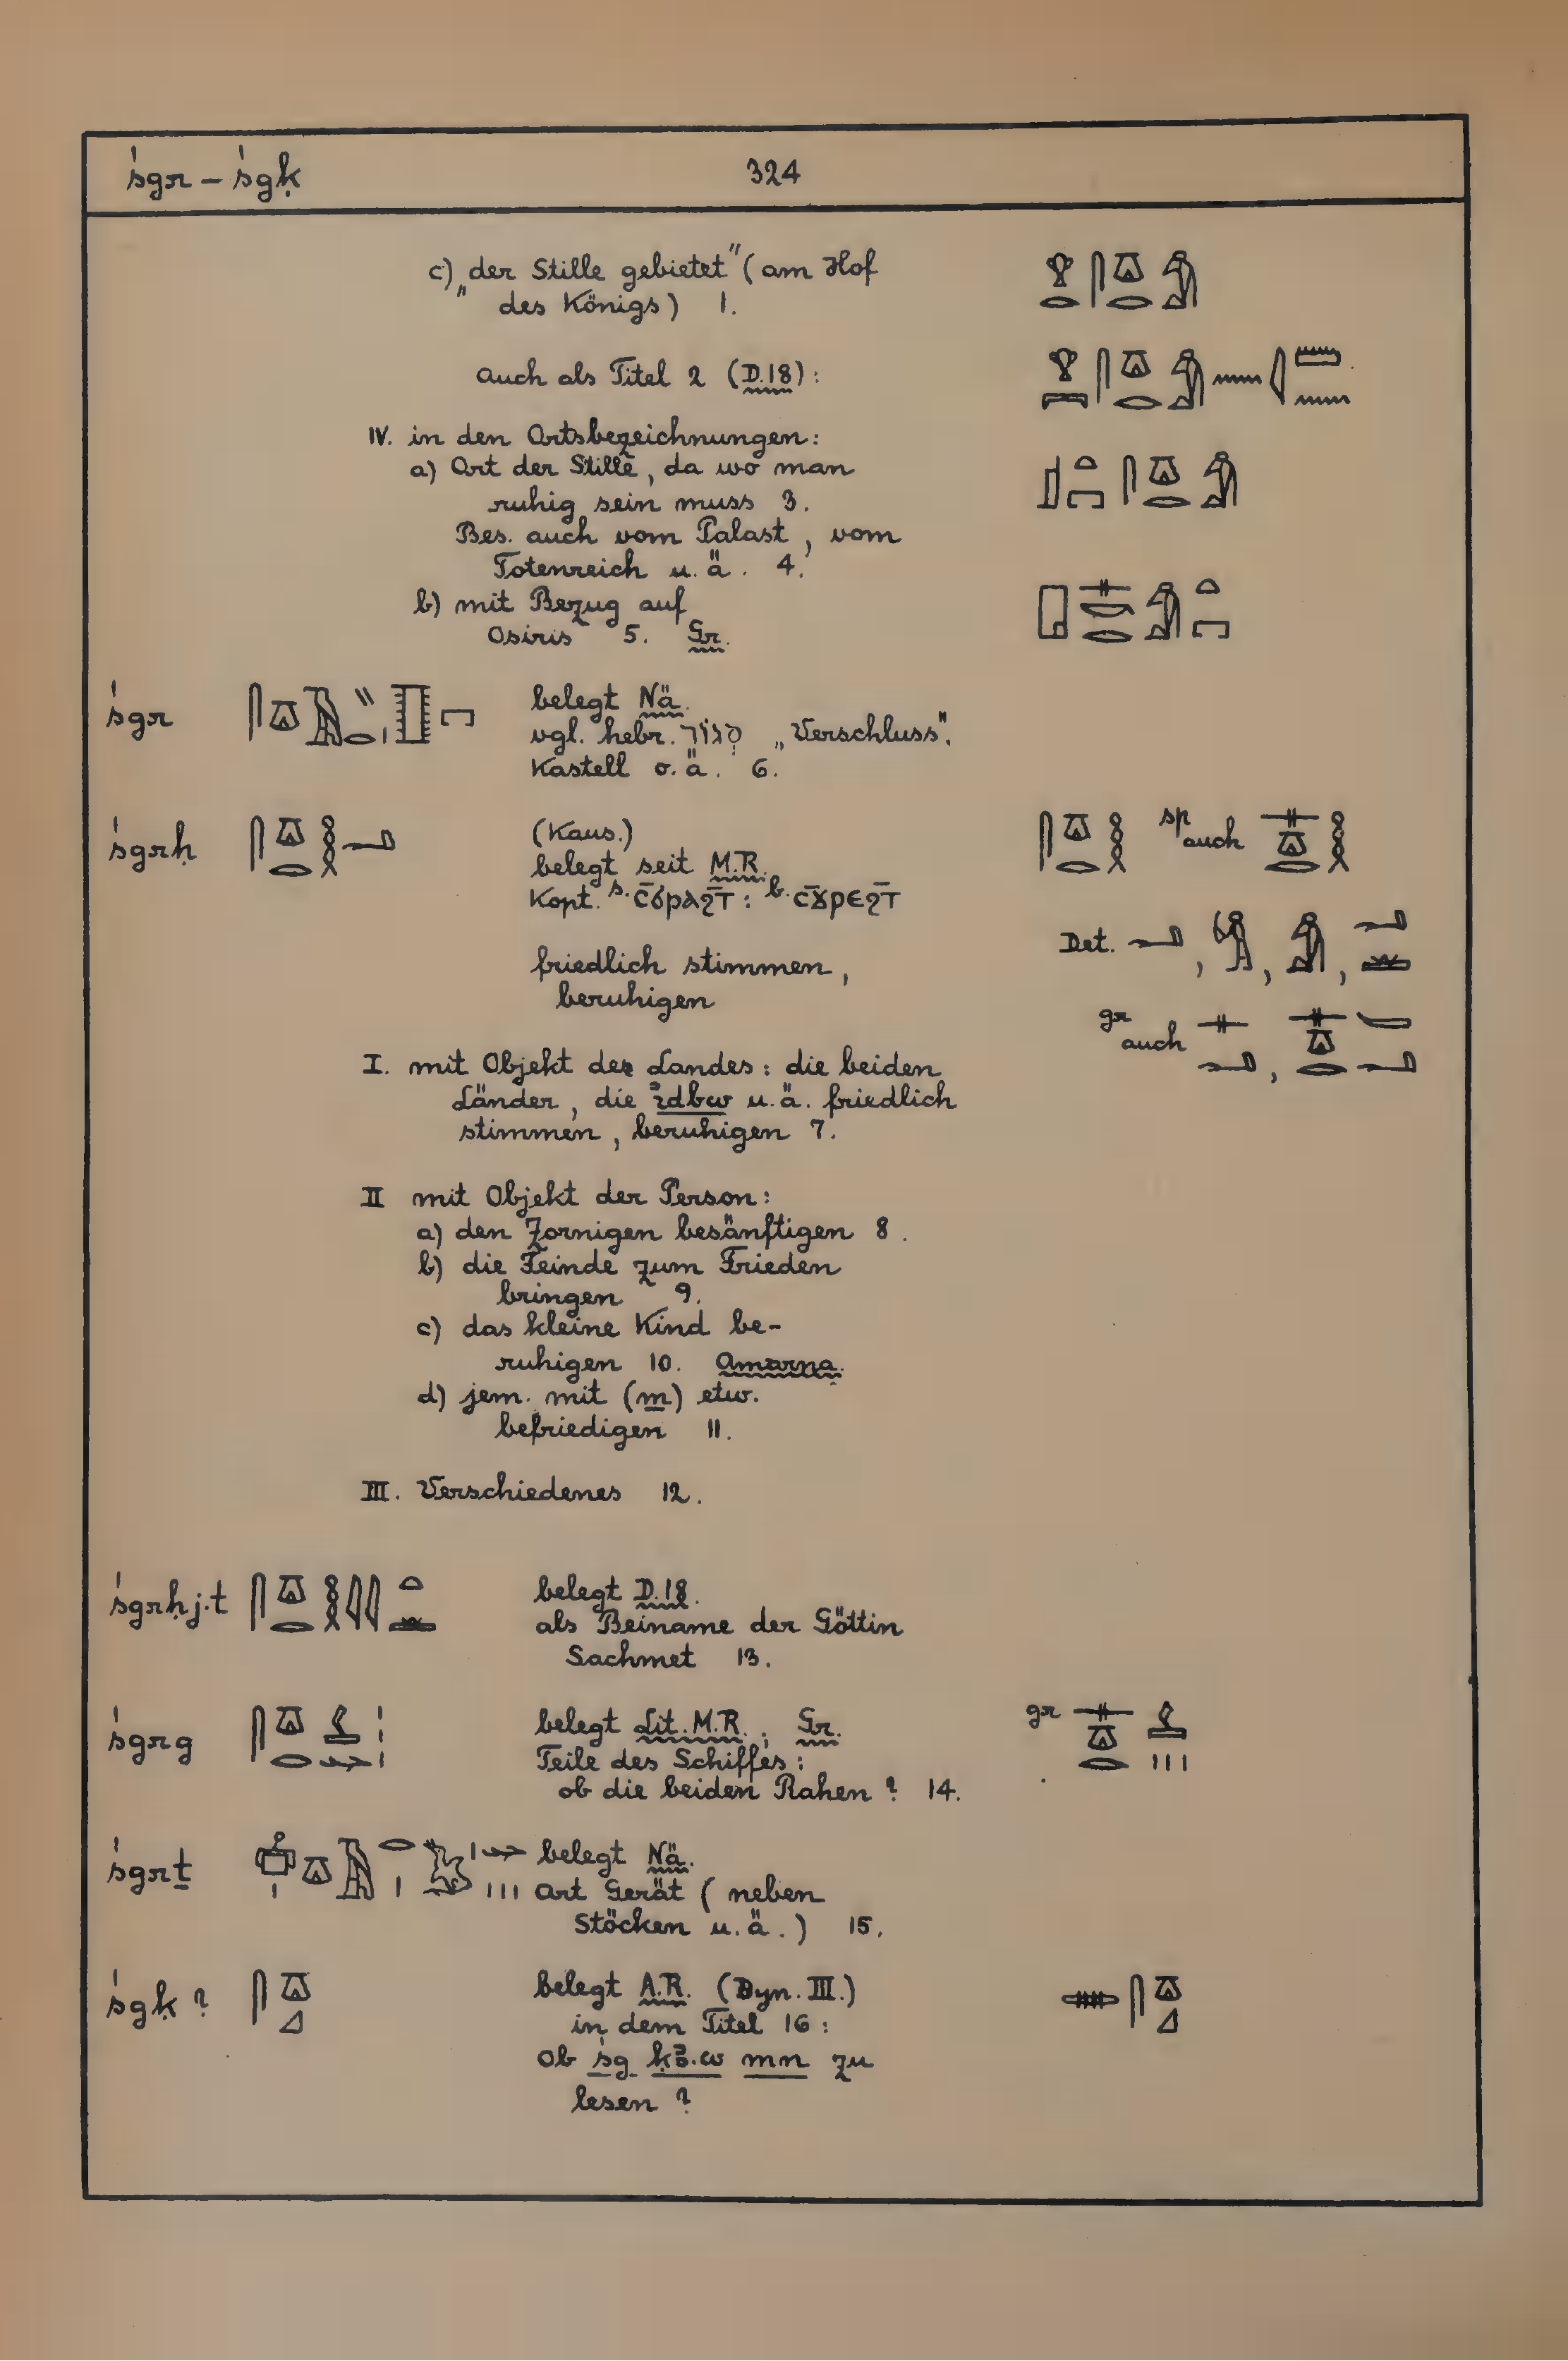 śgr – śgḳ
324
c) „der Stille gebietet" (am Hof
des Königs) 1.
auch als Titel 2 (D.18):
IV. in den Ortsbezeichnungen:
a) Ort der Stille, da wo man
ruhig sein muss 3.
Bes. auch vom Palast, vom
Totenreich u. ä. 4.
b) mit Bezug auf
Osiris 5. Gr.
śgr belegt Nä.
vgl. hebr. סְגוֹר „Verschluss".
Kastell o. ä. 6.
śgrḥ (Kaus.) sp auch
belegt seit M.R.
Kopt. s. ⲥ̄ϭⲣⲁϩⲧ̄ : b. ⲥϫ̄ⲣⲉϩⲧ̄
Det.
friedlich stimmen,
beruhigen
gr auch
I. mit Objekt des Landes: die beiden
Länder, die ꞽdbw u. ä. friedlich
stimmen, beruhigen 7.
II mit Objekt der Person:
a) den Zornigen besänftigen 8.
b) die Feinde zum Frieden
bringen 9.
c) das kleine Kind be-
ruhigen 10. Amarna.
d) jem. mit (m) etw.
befriedigen 11.
III. Verschiedenes 12.
śgrḥj.t belegt D.18.
als Beiname der Göttin
Sachmet 13.
śgrg belegt Lit. M.R.; Gr. gr
Teile des Schiffes:
ob die beiden Rahen? 14.
śgrṯ belegt Nä.
Art Gerät (neben
Stöcken u. ä.) 15.
śgḳ? belegt A.R. (Dyn. III.)
in dem Titel 16:
Ob śg ḳꜣ.w mn zu
lesen?